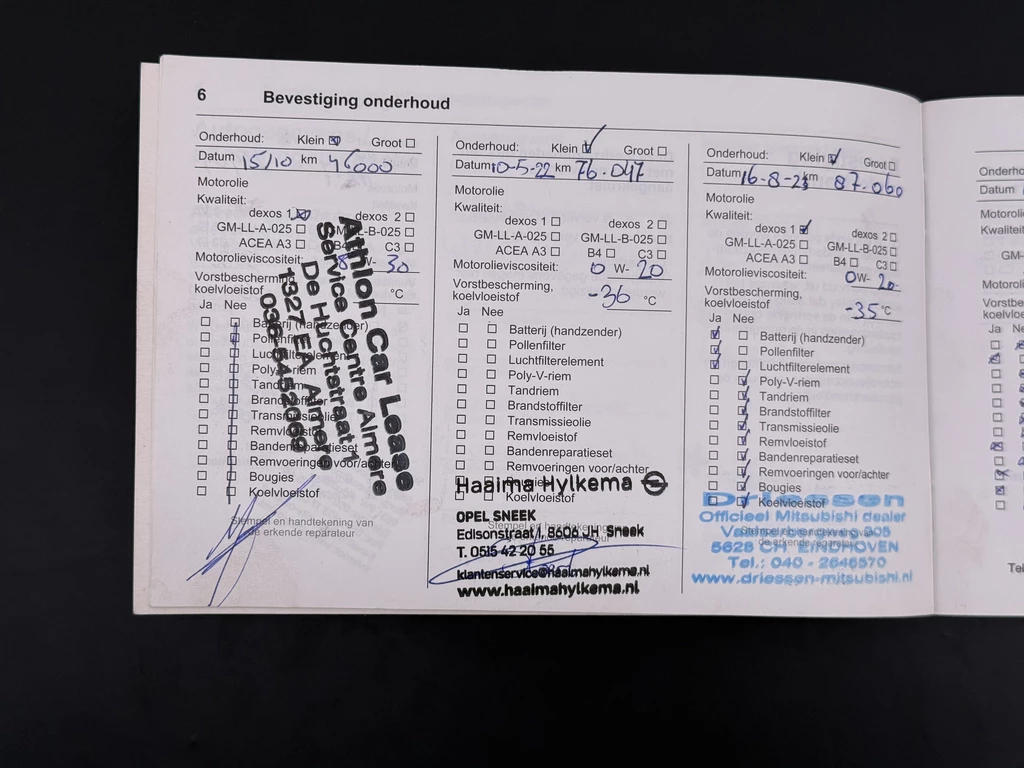 6 Bevestiging onderhoud
Onderhoud: Klein Groot
Datum 15/10 km 46000
Motorolie
Kwaliteit:
dexos 1 dexos 2
GM-LL-A-025 GM-LL-B-025
ACEA A3 B4 C3
Motorolieviscositeit: W- 30
Vorstbescherming,
koelvloeistof °C
Ja Nee
Batterij (handzender)
Pollenfilter
Luchtfilterelement
Poly-V-riem
Tandriem
Brandstoffilter
Transmissieolie
Remvloeistof
Bandenreparatieset
Remvoeringen voor/achter
Bougies
Koelvloeistof
Stempel en handtekening van
de erkende reparateur
Athlon Car Lease
Service Centre Almere
De Huchtstraat 1
1327 Almere
Onderhoud: Klein Groot
Datum 10-5-22 km 76.047
Motorolie
Kwaliteit:
dexos 1 dexos 2
GM-LL-A-025 GM-LL-B-025
ACEA A3 B4 C3
Motorolieviscositeit: 0 W- 20
Vorstbescherming,
koelvloeistof -36 °C
Ja Nee
Batterij (handzender)
Pollenfilter
Luchtfilterelement
Poly-V-riem
Tandriem
Brandstoffilter
Transmissieolie
Remvloeistof
Bandenreparatieset
Remvoeringen voor/achter
Bougies
Koelvloeistof
Haaima Hylkema
OPEL SNEEK
Stempel en handtekening
Edisonstraat 1, 8606 JH Sneek
T. 0515 42 20 55
klantenservice@haaimahylkema.nl
www.haaimahylkema.nl
Onderhoud: Klein Groot
Datum 16-8-23 km 87.060
Motorolie
Kwaliteit:
dexos 1 dexos 2
GM-LL-A-025 GM-LL-B-025
ACEA A3 B4 C3
Motorolieviscositeit: 0W- 20
Vorstbescherming,
koelvloeistof -35 °C
Ja Nee
Batterij (handzender)
Pollenfilter
Luchtfilterelement
Poly-V-riem
Tandriem
Brandstoffilter
Transmissieolie
Remvloeistof
Bandenreparatieset
Remvoeringen voor/achter
Bougies
Koelvloeistof
Driessen
Officieel Mitsubishi dealer
5628 CH EINDHOVEN
Tel.: 040 - 2646570
www.driessen-mitsubishi.nl
Datum
Kwaliteit
Ja Ne